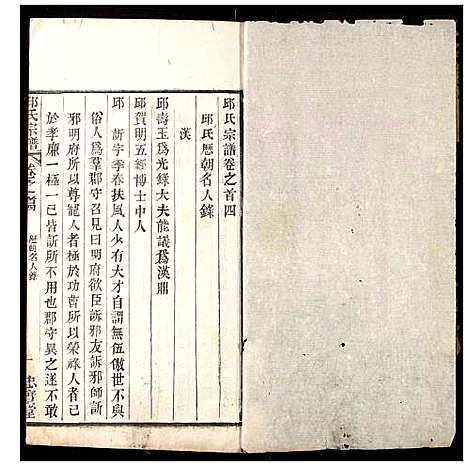 邱氏宗譜卷之首四
邱氏歷朝名人錄
漢
邱壽王爲光錄大夫能議爲漢鼎
邱賀明五經博士中人
邱訢字季春扶風人少有大才自謂無伍傲世不與
俗人爲羣郡守召見曰明府欲臣訢邪友訢邪師訢
邪明府所以尊寵人者極於功曹所以榮祿人者已
於孝廉一極一已皆訢所不用也郡守異之遂不敢
邱氏宗譜
歷朝名人錄
一